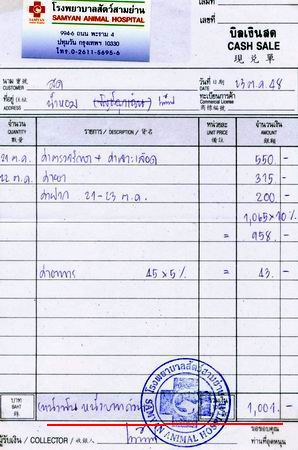 โรงพยาบาลสัตว์สามย่าน
SAMYAN ANIMAL HOSPITAL
994-6 ถนน พระราม 4
ปทุมวัน กรุงเทพฯ 10330
โทร.0-2611-5695-6
เล่มที่
เลขที่
บิลเงินสด
CASH SALE
現兌單
นาม 寶號
CUSTOMER สด
วันที่ 日期
DATE 23 ต.ค. 48
ที่อยู่ 住址
ADDRESS น้ำหอม
ทะเบียนการค้า
Commercial License
จำนวน
QUANTITY
數量
รายการ / DESCRIPTION / 貨名
หน่วยละ
UNIT PRICE
價銀
จำนวนเงิน
AMOUNT
銀額
21 ต.ค. ค่าตรวจรักษา + ค่าเจาะเลือด 550 -
22 ต.ค. ค่ายา 315 -
ค่าฝาก 21-23 ต.ค. 200 -
1,065 x 10%
= 958 -
ค่าอาหาร 45 x 5% = 43 -
บาท
BAHT
銖
1,001 -
โรงพยาบาลสัตว์สามย่าน
SAMYAN ANIMAL HOSPITAL
ผู้รับเงิน / COLLECTOR / 收銀人
ขอขอบคุณ
ท่านที่อุดหนุน